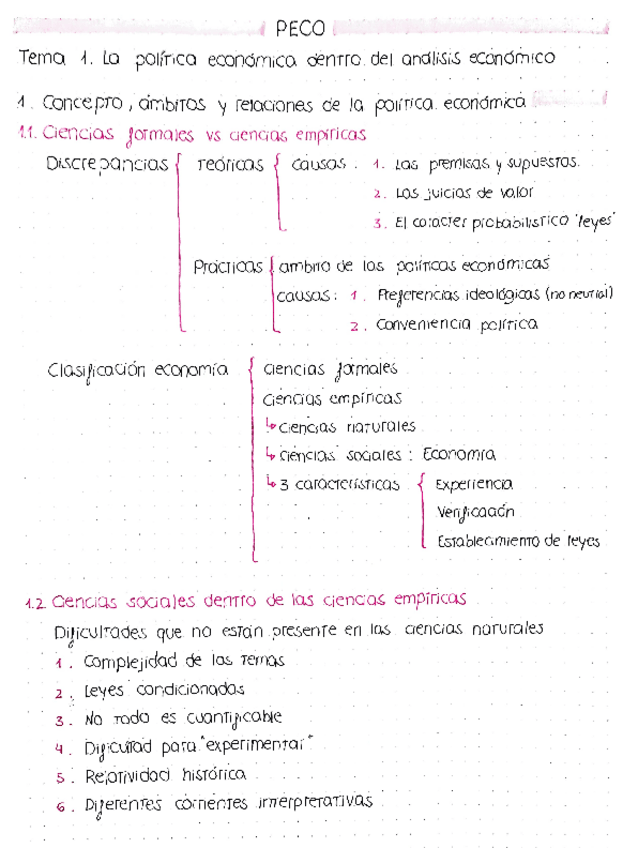 PECO
Tema 1. La política económica dentro del análisis económico
1. Concepto, ámbitos y relaciones de la política económica
1.1. Ciencias formales vs ciencias empíricas
Discrepancias { teóricas { causas: 1. Las premisas y supuestos.
2. Los juicios de valor
3. El carácter probabilístico "leyes"
Prácticas { ámbito de las políticas económicas
causas: 1. Preferencias ideológicas (no neutral)
2. Conveniencia política
Clasificación economía { ciencias formales
Ciencias empíricas
↳ ciencias naturales
↳ ciencias sociales: Economía
↳ 3 características { Experiencia
Verificación
Establecimiento de leyes
1.2. Ciencias sociales dentro de las ciencias empíricas
Dificultades que no están presente en las ciencias naturales
1. Complejidad de los temas
2. Leyes condicionadas
3. No todo es cuantificable
4. Dificultad para "experimentar"
5. Relatividad histórica
6. Diferentes corrientes interpretativas